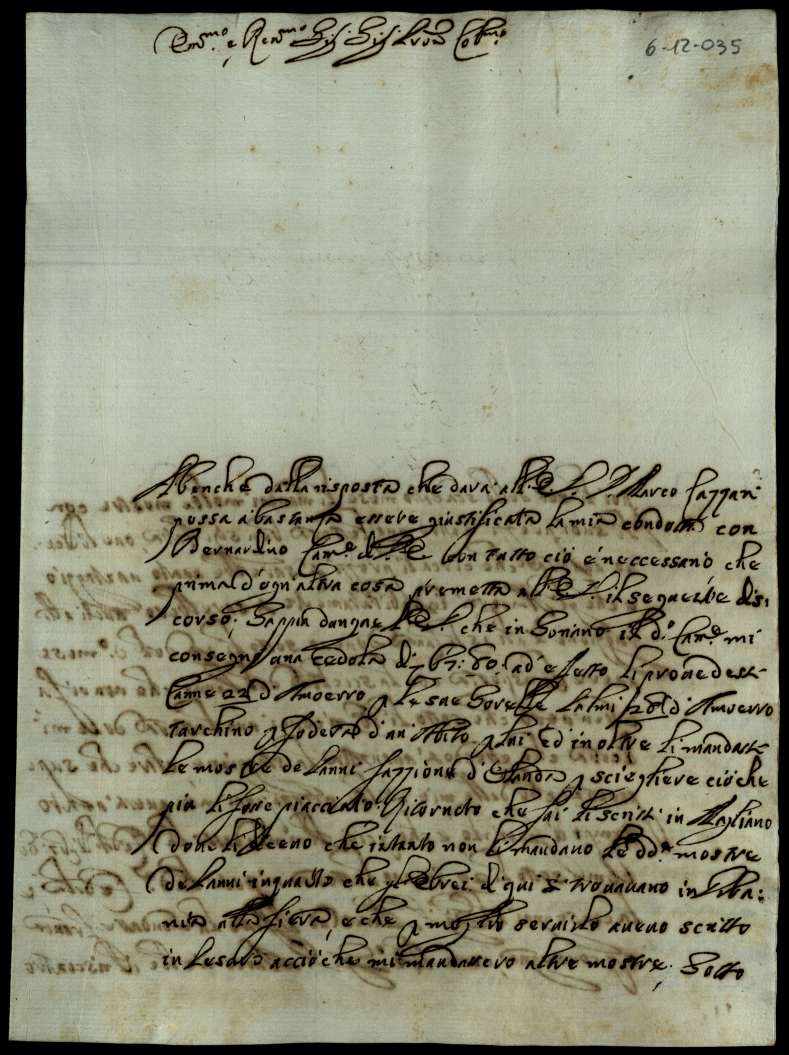 Em.mo e Rev.mo Sig. Sig. Pron Col.mo
6-12-035
Abenche dalla risposta che dava all' S. Marco Cazzan
possa abastanza essere giustificata la mia condotta con
Bernardino Cam.e con tutto ciò é neccessario che
prima d'ogn'altra cosa premetta all' il seguente dis:
corso; Sappia dunque che in il d.o Cam.e mi
consegnò una cedola di ad effetto li provedessi
Canne 22 d'Amoerro p le sue Sorelle Palmi d'Amoerro
Turchino p fodera d'un Abito p lui ed in oltre li mandassi
le mostre de Panni fazzione d'Olanda p sciegliere ciò che
più li fosse piacciuto. Ritornato che fui li scrissi in Magliano
dove li che intanto non li mandavo le dd.e mostre
de Panni inquanto che gl'Ebrei di qui si trovavano in Urba:
nia alla fiera, e che p meglio servirlo avevo scritto
in Pesaro acciò che mi mandassero altre mostre. Sotto